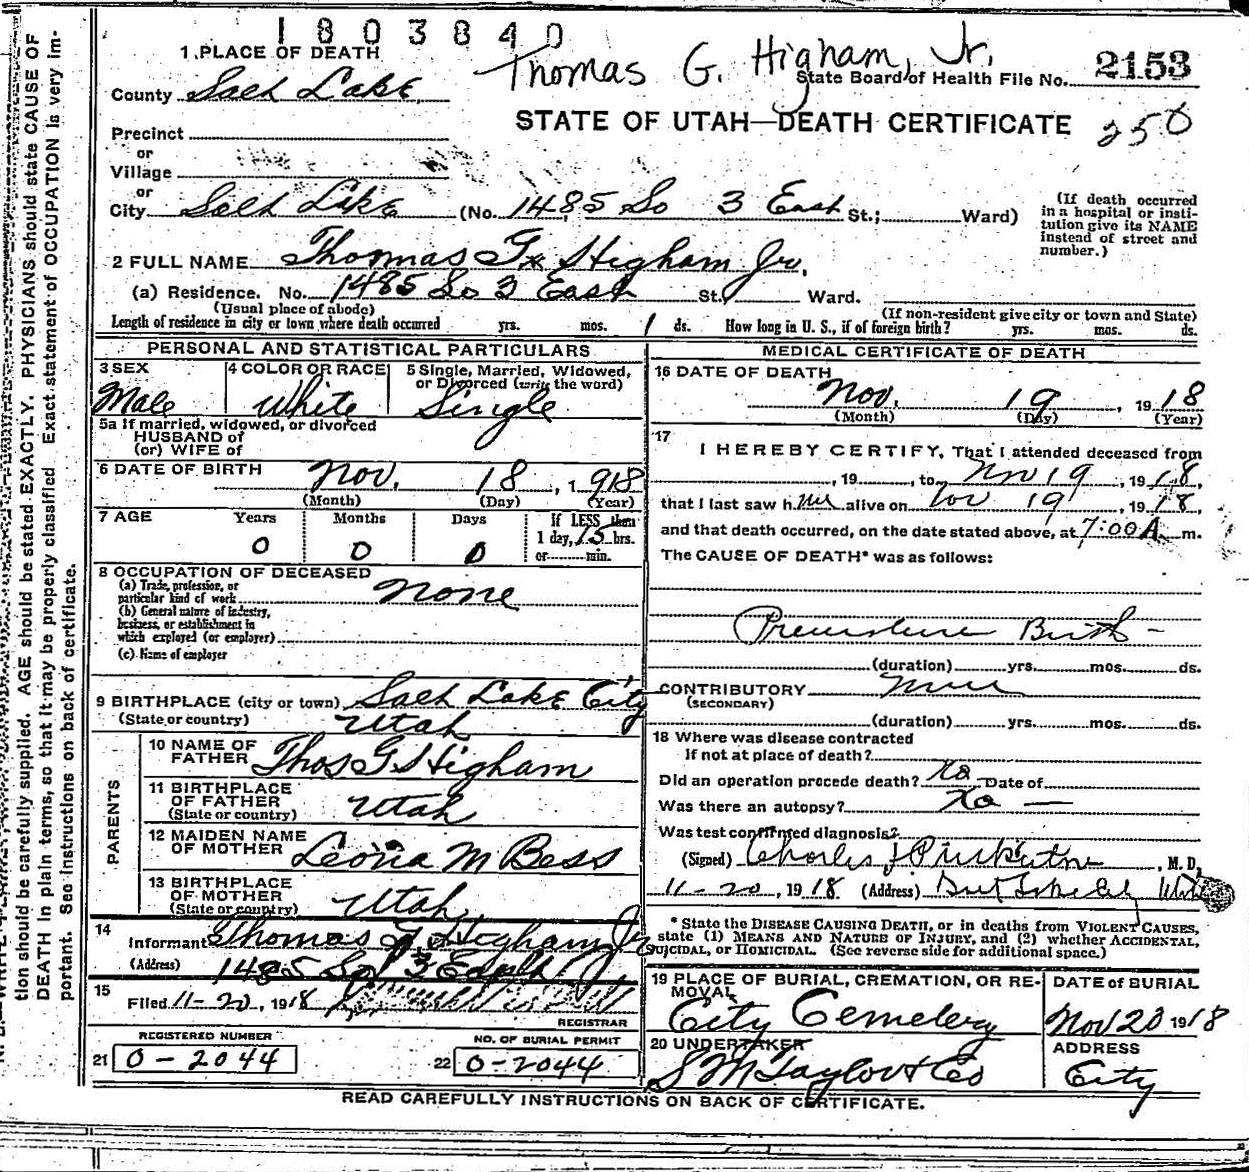 1803840
Thomas G. Higham, Jr.
1. PLACE OF DEATH
State Board of Health File No. 2153
County Salt Lake
STATE OF UTAH—DEATH CERTIFICATE
250
Precinct
or
Village
or
City Salt Lake (No. 1485 So 3 East St.; Ward)
(If death occurred in a hospital or insti-
tution give its NAME
instead of street and
number.)
2 FULL NAME Thomas G. Higham Jr.
(a) Residence. No. 1485 So 3 East St. Ward.
(Usual place of abode)
(If non-resident give city or town and State)
Length of residence in city or town where death occurred yrs. mos. 1 ds. How long in U. S., if of foreign birth? yrs. mos. ds.
PERSONAL AND STATISTICAL PARTICULARS
3 SEX
Male
4 COLOR OR RACE
White
5 Single, Married, Widowed,
or Divorced (write the word)
Single
5a If married, widowed, or divorced
HUSBAND of
(or) WIFE of
6 DATE OF BIRTH Nov. 18, 1918
(Month) (Day) (Year)
7 AGE Years Months Days If LESS than
0 0 0 1 day, 15 hrs.
or min.
8 OCCUPATION OF DECEASED
(a) Trade, profession, or
particular kind of work None
(b) General nature of industry,
business, or establishment in
which employed (or employer)
(c) Name of employer
9 BIRTHPLACE (city or town) Salt Lake City
(State or country) Utah
PARENTS
10 NAME OF
FATHER Thos G Higham
11 BIRTHPLACE
OF FATHER
(State or country) Utah
12 MAIDEN NAME
OF MOTHER Leona M Bess
13 BIRTHPLACE
OF MOTHER
(State or country) Utah
14
Informant Thomas G. Higham Jr
(Address) 1485 So 3 East
15
Filed 11-20, 1918
REGISTRAR
REGISTERED NUMBER
21 0-2044
NO. OF BURIAL PERMIT
22 0-2044
MEDICAL CERTIFICATE OF DEATH
16 DATE OF DEATH
Nov. 19, 1918
(Month) (Day) (Year)
17
I HEREBY CERTIFY, That I attended deceased from
, 19 , to Nov 19, 1918,
that I last saw him alive on Nov 19, 1918,
and that death occurred, on the date stated above, at 7:00 A. m.
The CAUSE OF DEATH* was as follows:
Premature Birth -
(duration) yrs. mos. ds.
CONTRIBUTORY None
(SECONDARY)
(duration) yrs. mos. ds.
18 Where was disease contracted
If not at place of death?
Did an operation precede death? No Date of
Was there an autopsy? No —
Was test confirmed diagnosis?
(Signed) Charles , M. D.
11-20, 1918 (Address) Salt Lake City Utah
* State the DISEASE CAUSING DEATH, or in deaths from VIOLENT CAUSES,
state (1) MEANS AND NATURE OF INJURY, and (2) whether ACCIDENTAL,
SUICIDAL, or HOMICIDAL. (See reverse side for additional space.)
19 PLACE OF BURIAL, CREMATION, OR RE-
MOVAL
City Cemetery
DATE of BURIAL
Nov 20 1918
20 UNDERTAKER
S M Taylor & Co
ADDRESS
City
READ CAREFULLY INSTRUCTIONS ON BACK OF CERTIFICATE.
tion should be carefully supplied. AGE should be stated EXACTLY. PHYSICIANS should state CAUSE OF
DEATH in plain terms, so that it may be properly classified. Exact statement of OCCUPATION is very im-
portant. See instructions on back of certificate.